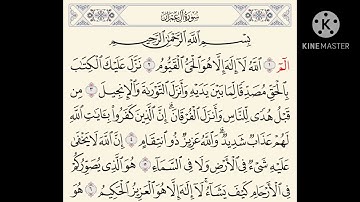 سُورَةُ آلِ عِمْرَانَ
بِسْمِ اللَّهِ الرَّحْمَٰنِ الرَّحِيمِ
الٓمٓ ١ اللَّهُ لَا إِلَٰهَ إِلَّا هُوَ الْحَيُّ الْقَيُّومُ ٢ نَزَّلَ عَلَيْكَ الْكِتَابَ
بِالْحَقِّ مُصَدِّقًا لِمَا بَيْنَ يَدَيْهِ وَأَنْزَلَ التَّوْرَىٰةَ وَالْإِنْجِيلَ ٣ مِنْ
قَبْلُ هُدًى لِلنَّاسِ وَأَنْزَلَ الْفُرْقَانَ إِنَّ الَّذِينَ كَفَرُوا بِآيَاتِ اللَّهِ
لَهُمْ عَذَابٌ شَدِيدٌ وَاللَّهُ عَزِيزٌ ذُو انْتِقَامٍ ٤ إِنَّ اللَّهَ لَا يَخْفَىٰ
عَلَيْهِ شَيْءٌ فِي الْأَرْضِ وَلَا فِي السَّمَاءِ ٥ هُوَ الَّذِي يُصَوِّرُكُمْ
فِي الْأَرْحَامِ كَيْفَ يَشَاءُ لَا إِلَٰهَ إِلَّا هُوَ الْعَزِيزُ الْحَكِيمُ ٦ هُوَ
KINEMASTER